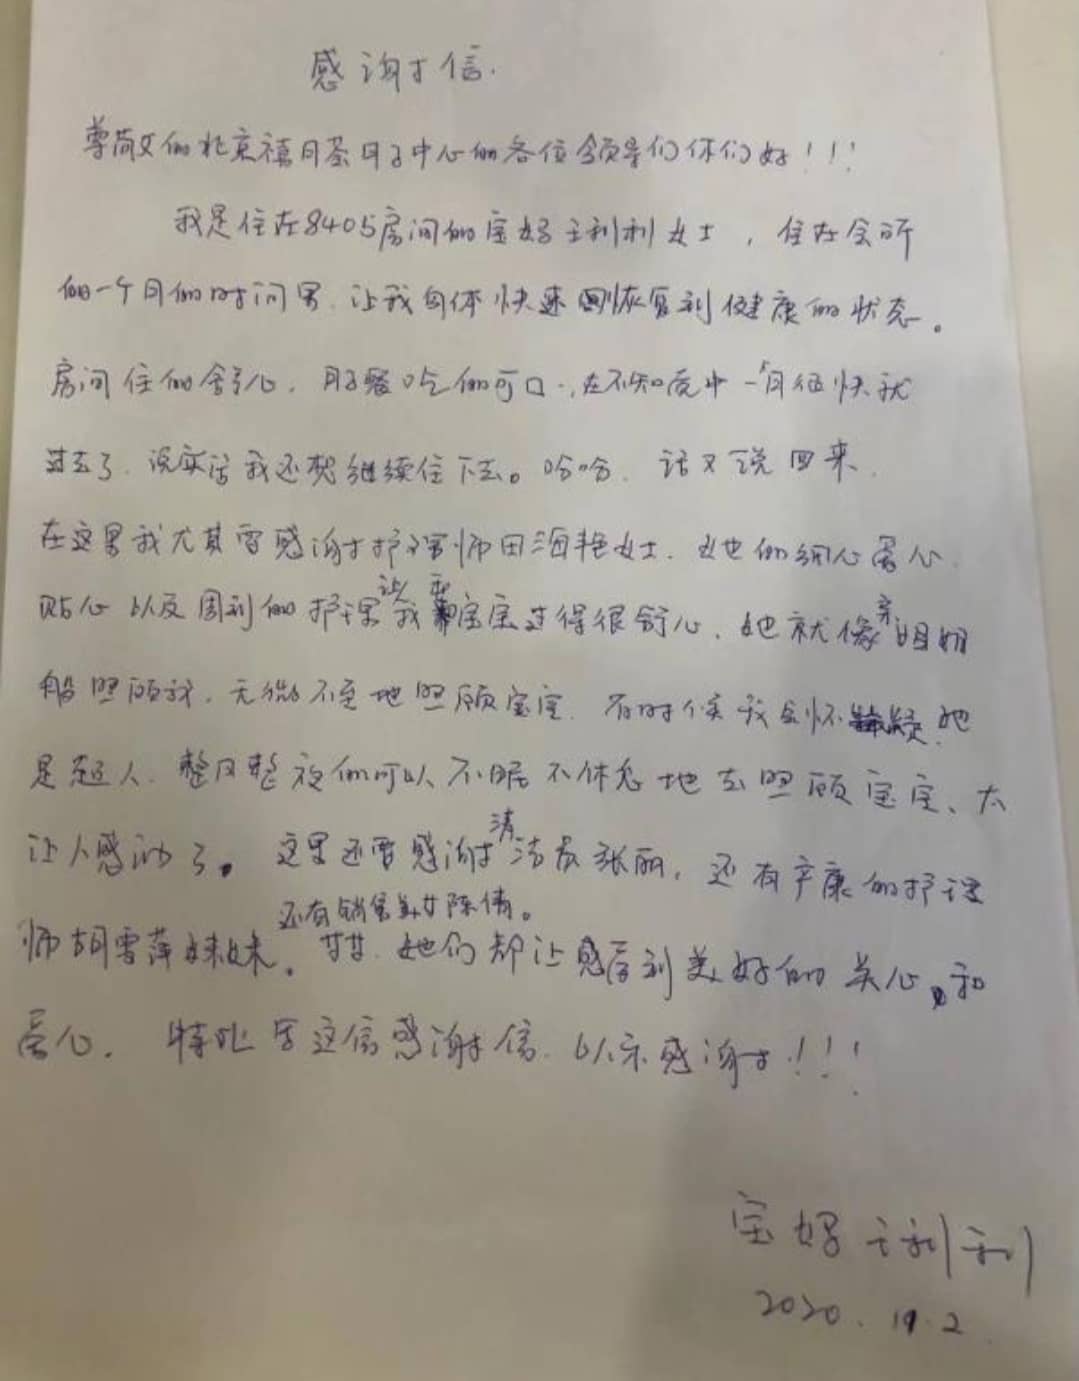 感谢信.
尊敬的北京禧月荟月子中心的各位领导们你们好！！！
我是住在8405房间的宝妈王利利女士，住在会所
的一个月的时间里.让我身体快速恢复到健康的状态。
房间住的舒心.月子餐吃的可口.,在不知觉中一个月很快就
过去了.说实话我还想继续住下去。哈哈.话又说回来.
在这里我尤其要感谢护理师田海艳女士.她的细心爱心.
贴心以及周到的护理让我和宝宝过得很舒心.她就像亲姐姐
般照顾我.无微不至地照顾宝宝.有时候我会怀疑她
是超人.整日整夜的可以不眠不休息地去照顾宝宝、太
让人感动了。这里还要感谢清洁员张丽,还有产康的护理
师胡雪萍妹妹。还有销售美女陈倩。她们都让感受到美好的关心和
爱心.特此写这信感谢信.以示感谢！！！
宝妈王利利
2020.11.2